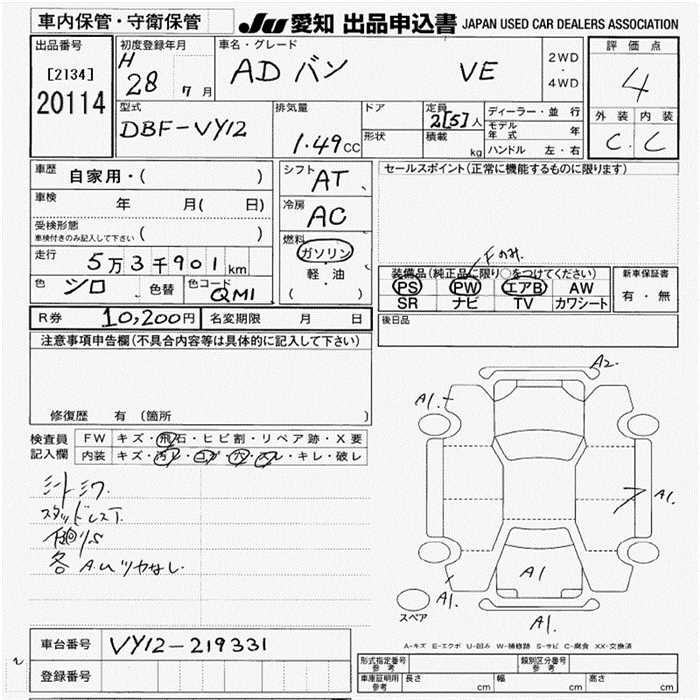 車内保管・守衛保管
JU 愛知 出品申込書 JAPAN USED CAR DEALERS ASSOCIATION
出品番号
[2134]
20114
初度登録年月
H 28 7月
車名・グレード
AD バン VE
2WD
・
4WD
評価点
4
外装 内装
C C
型式
DBF-VY12
排気量
1.49cc
ドア
形状
定員
2[5]人
積載
kg
ディーラー・並行
モデル年式 年
ハンドル 左・右
車歴
自家用・( )
車検
年 月( 日)
受検形態
車検付きのみ記入して下さい ( )
走行
5万3千901km
色
シロ
色替
色コード
QM1
シフト
AT
冷房
AC
燃料
ガソリン
・
軽・油
( )
セールスポイント(正常に機能するものに限ります)
Fのみ
装備品(純正品に限り○をつけてください)
PS PW エアB AW
SR ナビ TV カワシート
新車保証書
有・無
後日品
R券 10,200円 名変期限 月 日
注意事項申告欄(不具合内容等は具体的に記入して下さい)
修復歴 有 (箇所 )
検査員
記入欄
FW キズ・飛石・ヒビ割・リペア跡・X要
内装 キズ・汚レ・コゲ・穴・スレ・キレ・破レ
シートシワ
スタッドレスT.
各 A.Uツカなし
A2.
A1.
A1.
A1
A1.
A1.
スペア
A-キズ E-エクボ U-凹み W-補修跡 S-サビ C-腐食 XX-交換済
車台番号 VY12-219331
登録番号
形式指定番号
参考
類別区分番号
参考
車庫証明用
参考
長さ cm 幅 cm 高さ cm